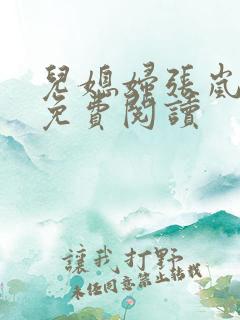 兒媳婦張嵐
免費閱讀
讓我打野
未經同意禁止轉載